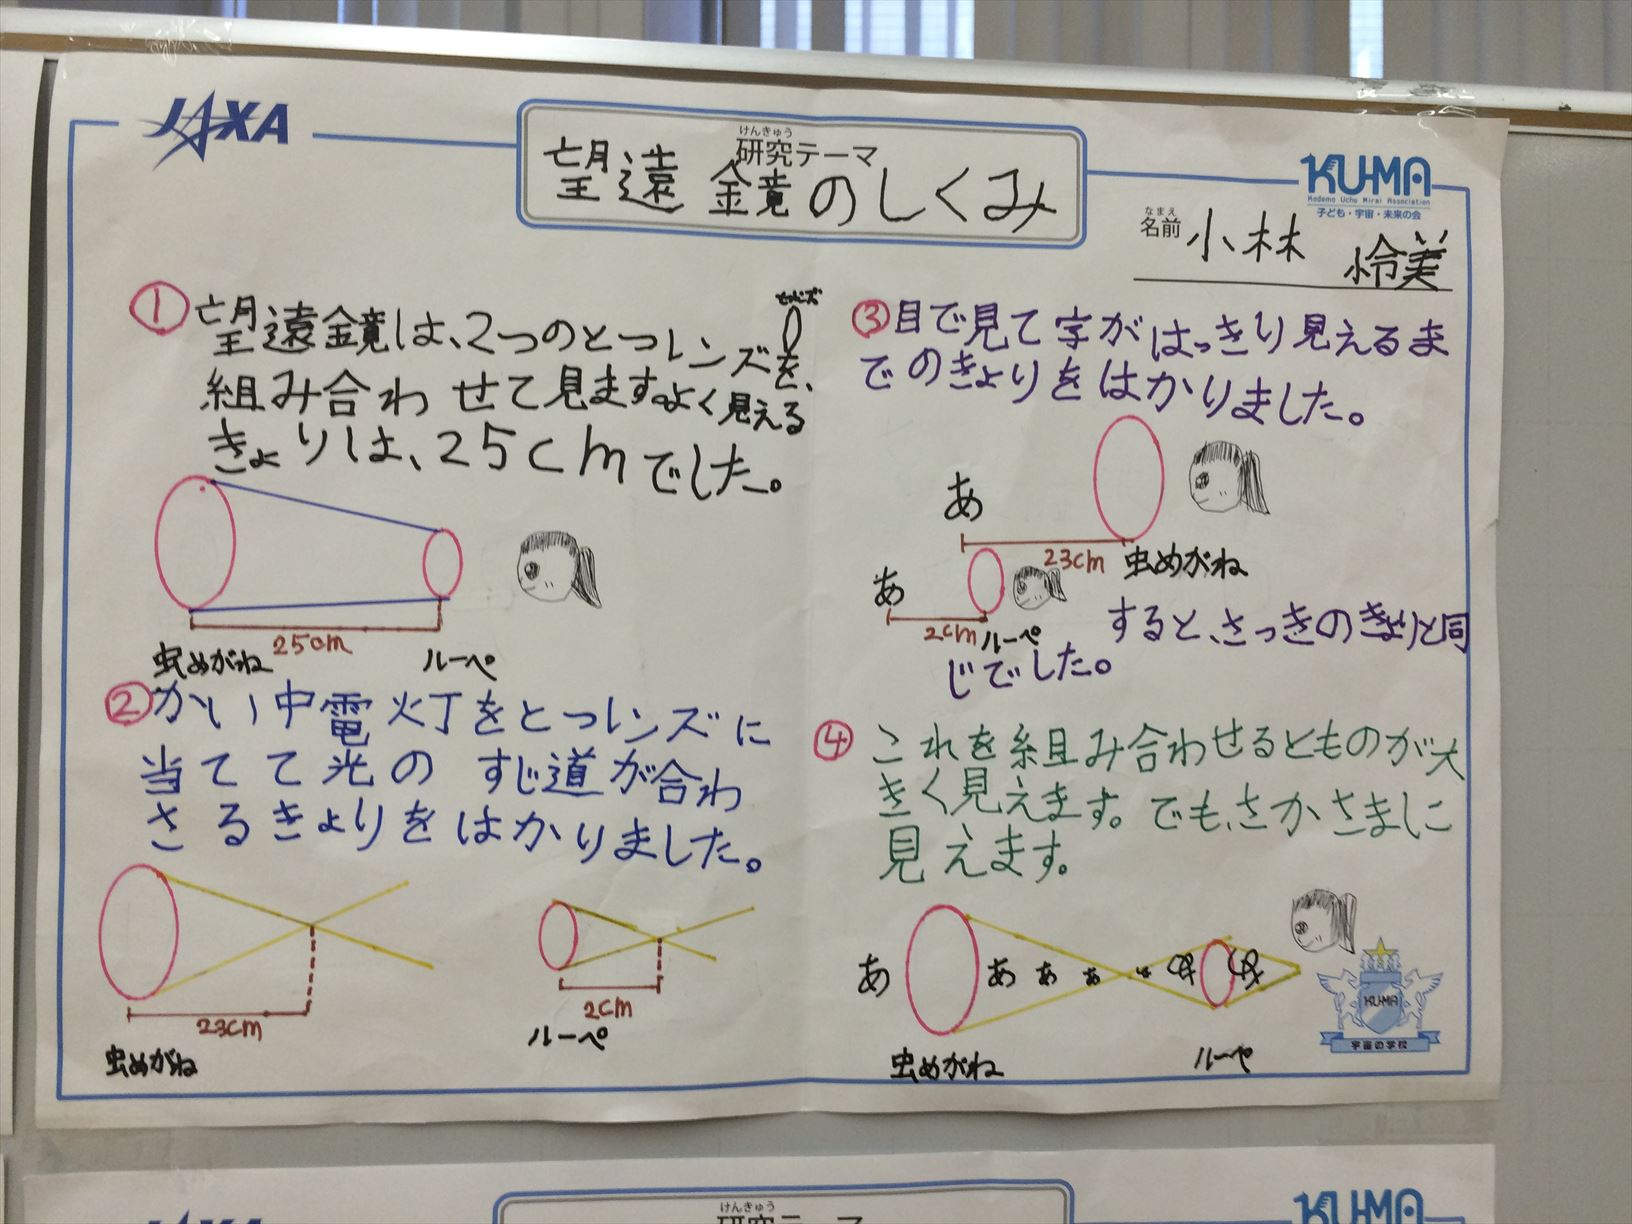 JAXA
けんきゅう
研究テーマ
望遠鏡のしくみ
KU-MA
Kodomo Uchu Mirai Association
子ども・宇宙・未来の会
なまえ
名前 小林 怜美
① 望遠鏡は、2つのとつレンズを、
組み合わせて見ます。よく見える
きょりは、25cmでした。
25cm
虫めがね
ルーペ
②かい中電灯をとつレンズに
当てて光の すじ道が合わ
さるきょりをはかりました。
23cm
虫めがね
2cm
ルーペ
③目で見て字がはっきり見えるま
でのきょりをはかりました。
あ
23cm
虫めがね
あ
2cm
ルーペ
すると、さっきのきょりと同
じでした。
④ これを組み合わせるとものが大
きく見えます。でも、さかさまに
見えます。
あ
あ
あ
あ
虫めがね
ルーペ
KU-MA
宇宙の学校
けんきゅう
研究テーマ
JAXA
KU-MA